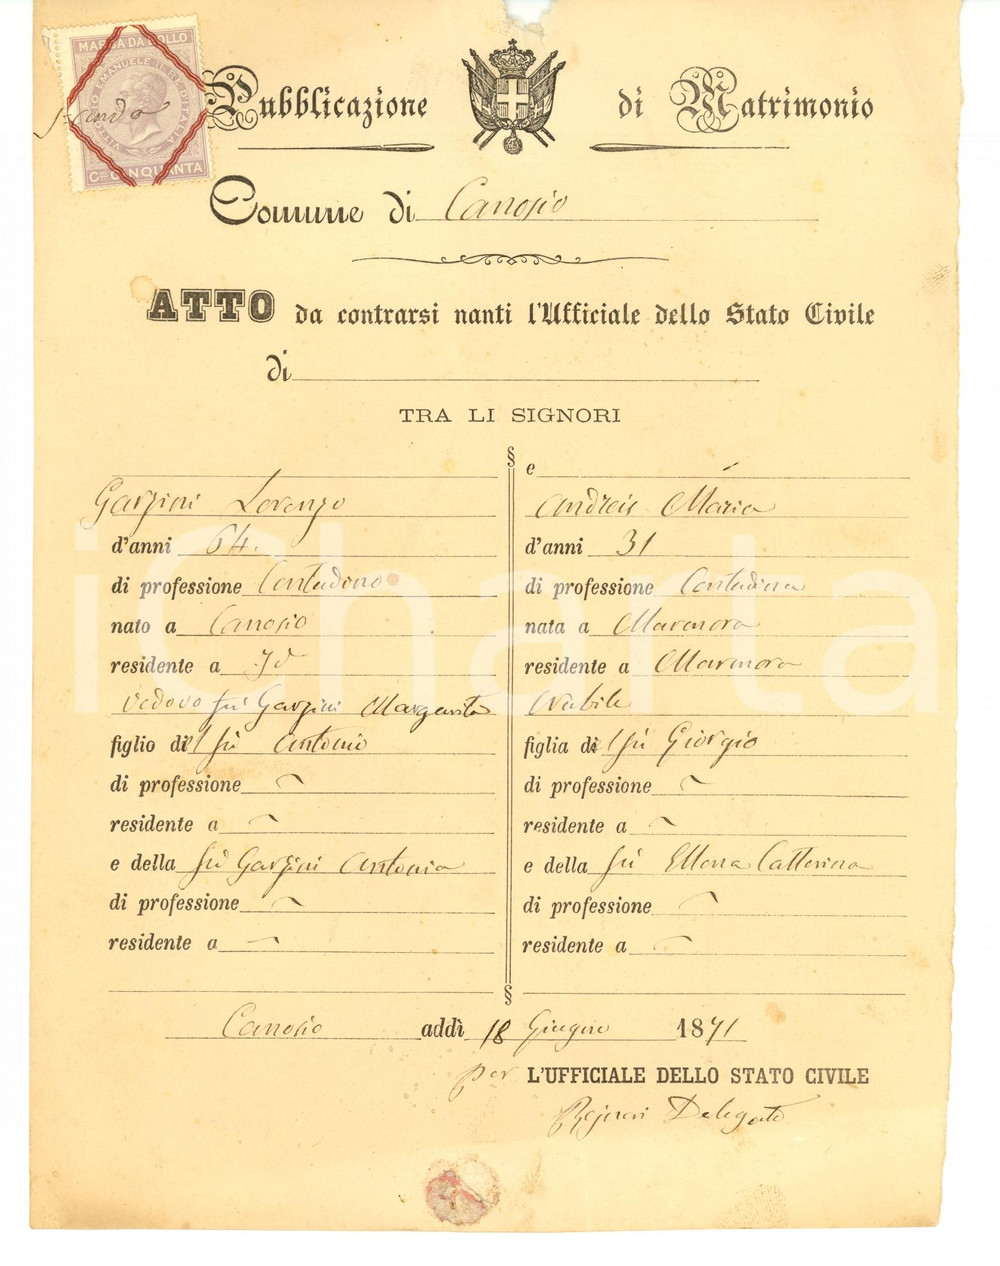 MARCA DA BOLLO
VITTORIO EMANUELE II RE D'ITALIA
Cmi CINQUANTA
Pubblicazione di Matrimonio
Comune di Canosio
ATTO da contrarsi nanti l'Ufficiale dello Stato Civile
di
TRA LI SIGNORI
§
Garzini Lorenzo
d'anni 64.
di professione Contadino
nato a Canosio
residente a Id
vedovo fu Garzini Margarita
figlio di fu Antonio
di professione ~
residente a ~
e della fu Garzini Antonia
di professione ~
residente a ~
e
Andreis Maria
d'anni 31
di professione Contadina
nata a Marmora
residente a Marmora
Nubile
figlia di fu Giorgio
di professione ~
residente a ~
e della fu Ellena Catterina
di professione ~
residente a ~
§
Canosio addì 18 Giugno 1871
per L'UFFICIALE DELLO STATO CIVILE
Delegato
iCharta